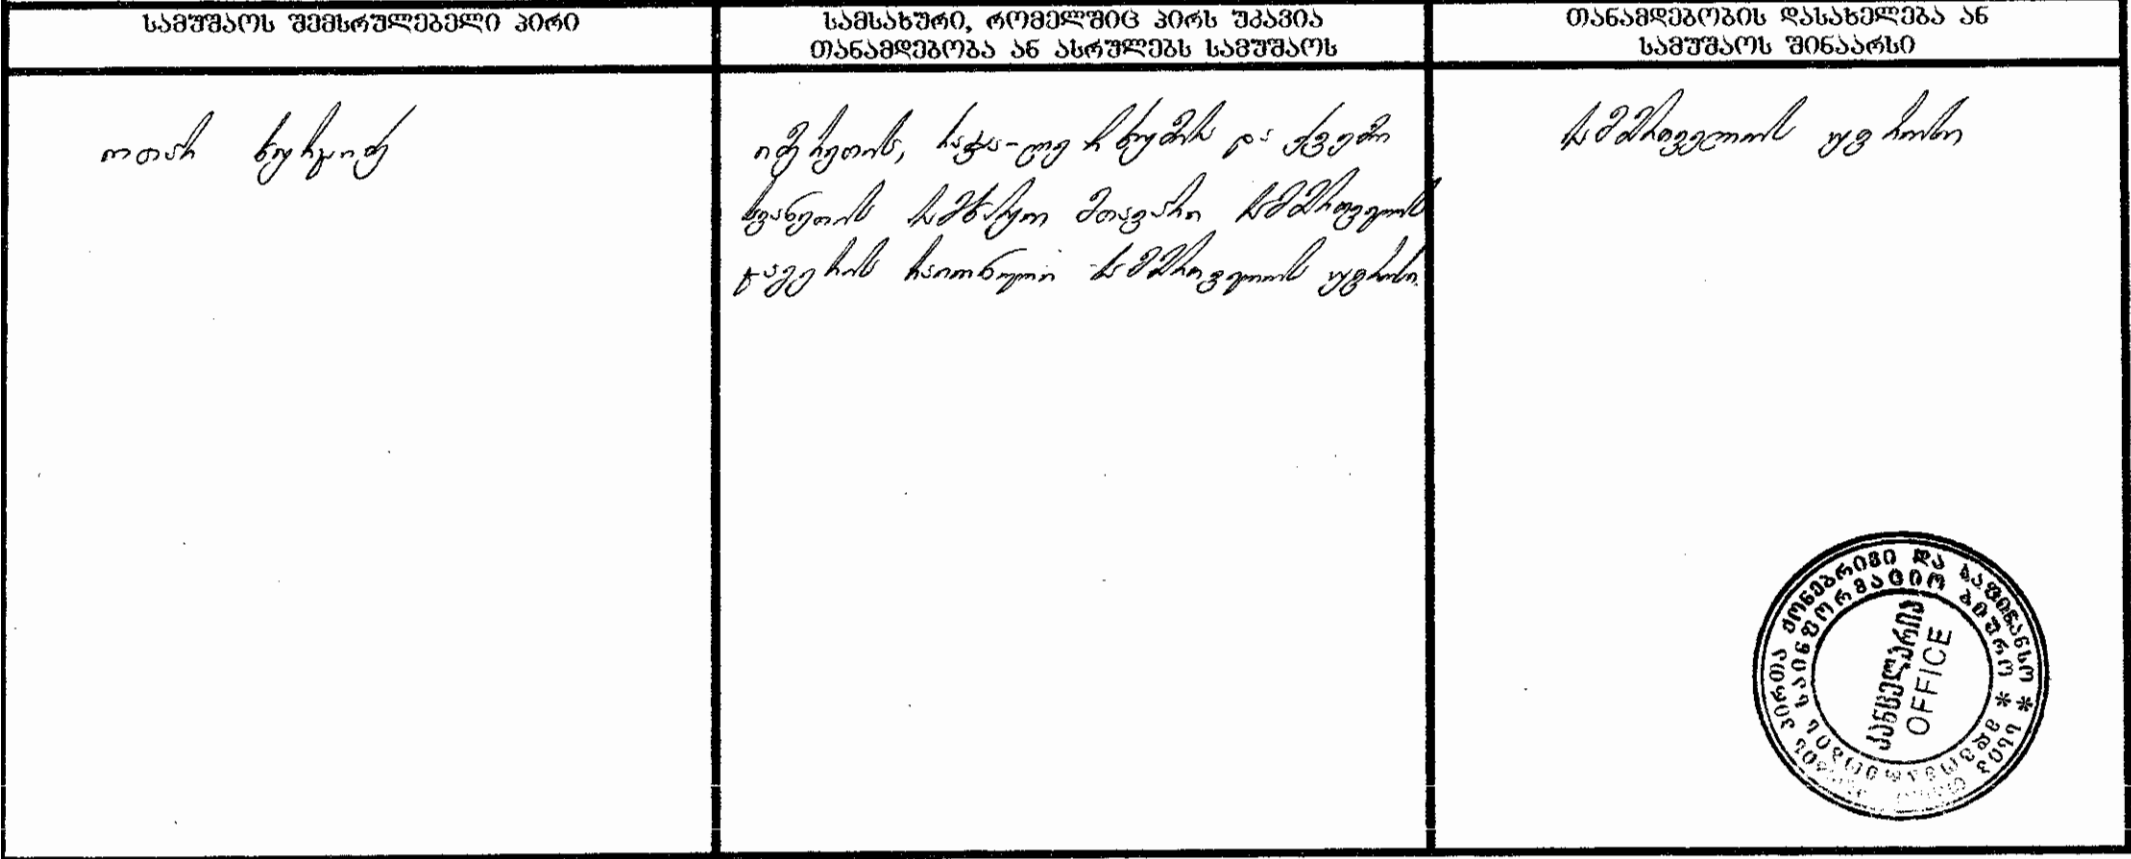 სამუშაოს შემსრულებელი პირი
სამსახური, რომელშიც პირს უკავია
თანამდებობა ან ასრულებს სამუშაოს
თანამდებობის დასახელება ან
სამუშაოს შინაარსი
ოთარ ხურციძე
იმერეთის, რაჭა-ლეჩხუმის და ქვემო
სვანეთის სამხარეო მთავარი სამმართველოს
ჯაგერის რაიონული სამმართველოს უფროსი
სამმართველოს უფროსი
პირთა ქონებრივი და საფინანსო * სსიპ
საინფორმაციო ბიურო *
კანცელარია
OFFICE